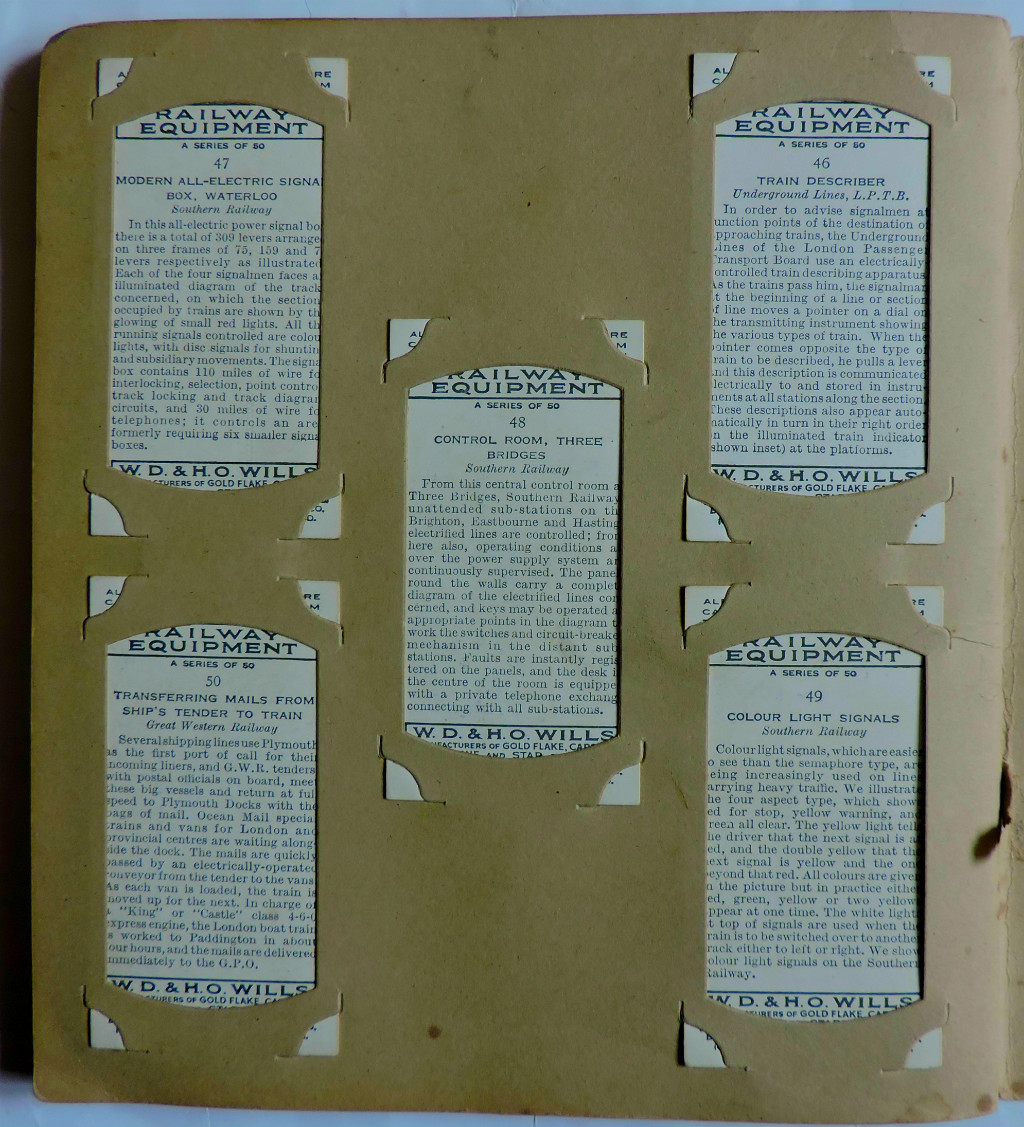 RAILWAY
EQUIPMENT
A SERIES OF 50
47
MODERN ALL-ELECTRIC SIGNA
BOX, WATERLOO
Southern Railway
In this all-electric power signal bo
there is a total of 309 levers arrange
on three frames of 75, 159 and 7
levers respectively as illustrated
Each of the four signalmen faces a
illuminated diagram of the track
concerned, on which the section
occupied by trains are shown by th
glowing of small red lights. All th
running signals controlled are colou
lights, with disc signals for shuntin
and subsidiary movements. The signa
box contains 110 miles of wire fo
interlocking, selection, point contro
track locking and track diagram
circuits, and 30 miles of wire fo
telephones; it controls an are
formerly requiring six smaller signa
boxes.
W. D. & H. O. WILLS
CTURERS OF GOLD FLAKE, CA
RAILWAY
EQUIPMENT
A SERIES OF 50
46
TRAIN DESCRIBER
Underground Lines, L.P.T.B.
In order to advise signalmen at
unction points of the destination o
pproaching trains, the Underground
ines of the London Passenge
ransport Board use an electrically
ontrolled train describing apparatus
s the trains pass him, the signalman
t the beginning of a line or section
f line moves a pointer on a dial on
he transmitting instrument showing
he various types of train. When the
ointer comes opposite the type o
rain to be described, he pulls a leve
nd this description is communicated
lectrically to and stored in instru-
ments at all stations along the section
These descriptions also appear auto-
matically in turn in their right order
n the illuminated train indicator
shown inset) at the platforms.
W. D. & H. O. WILLS
CTURERS OF GOLD FLAKE, CA
RAILWAY
EQUIPMENT
A SERIES OF 50
48
CONTROL ROOM, THREE
BRIDGES
Southern Railway
From this central control room a
Three Bridges, Southern Railway
unattended sub-stations on th
Brighton, Eastbourne and Hasting
electrified lines are controlled; from
here also, operating conditions a
over the power supply system ar
continuously supervised. The pane
round the walls carry a complet
diagram of the electrified lines con
cerned, and keys may be operated a
appropriate points in the diagram t
work the switches and circuit-breake
mechanism in the distant sub
stations. Faults are instantly regis
tered on the panels, and the desk i
the centre of the room is equippe
with a private telephone exchang
connecting with all sub-stations.
W. D. & H. O. WILLS
UFACTURERS OF GOLD FLAKE, CAPS
AND STAR
RAILWAY
EQUIPMENT
A SERIES OF 50
50
TRANSFERRING MAILS FROM
SHIP'S TENDER TO TRAIN
Great Western Railway
Several shipping lines use Plymouth
as the first port of call for their
incoming liners, and G.W.R. tenders
with postal officials on board, meet
these big vessels and return at full
speed to Plymouth Docks with the
bags of mail. Ocean Mail special
trains and vans for London and
provincial centres are waiting along-
side the dock. The mails are quickly
passed by an electrically-operated
conveyor from the tender to the vans.
As each van is loaded, the train is
moved up for the next. In charge of
a "King" or "Castle" class 4-6-0
express engine, the London boat train
s worked to Paddington in about
our hours, and the mails are delivered
mmediately to the G.P.O.
W. D. & H. O. WILLS
CTURERS OF GOLD FLAKE, CA
RAILWAY
EQUIPMENT
A SERIES OF 50
49
COLOUR LIGHT SIGNALS
Southern Railway
Colour light signals, which are easie
o see than the semaphore type, are
eing increasingly used on line
arrying heavy traffic. We illustrate
he four aspect type, which show
ed for stop, yellow warning, an
reen all clear. The yellow light tell
he driver that the next signal is a
ed, and the double yellow that the
ext signal is yellow and the on
eyond that red. All colours are give
n the picture but in practice eithe
ed, green, yellow or two yellow
ppear at one time. The white light
t top of signals are used when the
rain is to be switched over to anothe
rack either to left or right. We show
olour light signals on the Southern
Railway.
W. D. & H. O. WILLS
CTURERS OF GOLD FLAKE, CAP